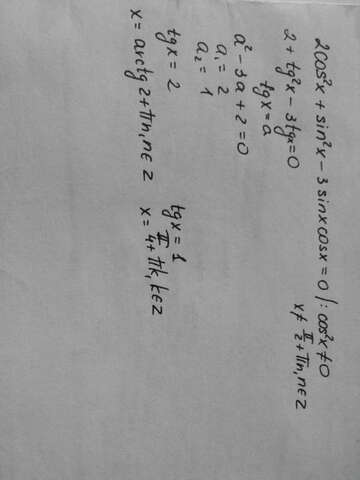 2cos²x + sin²x - 3 sinx cosx = 0 /: cos²x ≠ 0
x ≠ π/2 + πn, n∈Z
2 + tg²x - 3tgx = 0
tgx = a
a² - 3a + 2 = 0
a₁ = 2
a₂ = 1
tgx = 2
tgx = 1
x = arctg 2 + πn, n∈Z
x = π/4 + πk, k∈Z